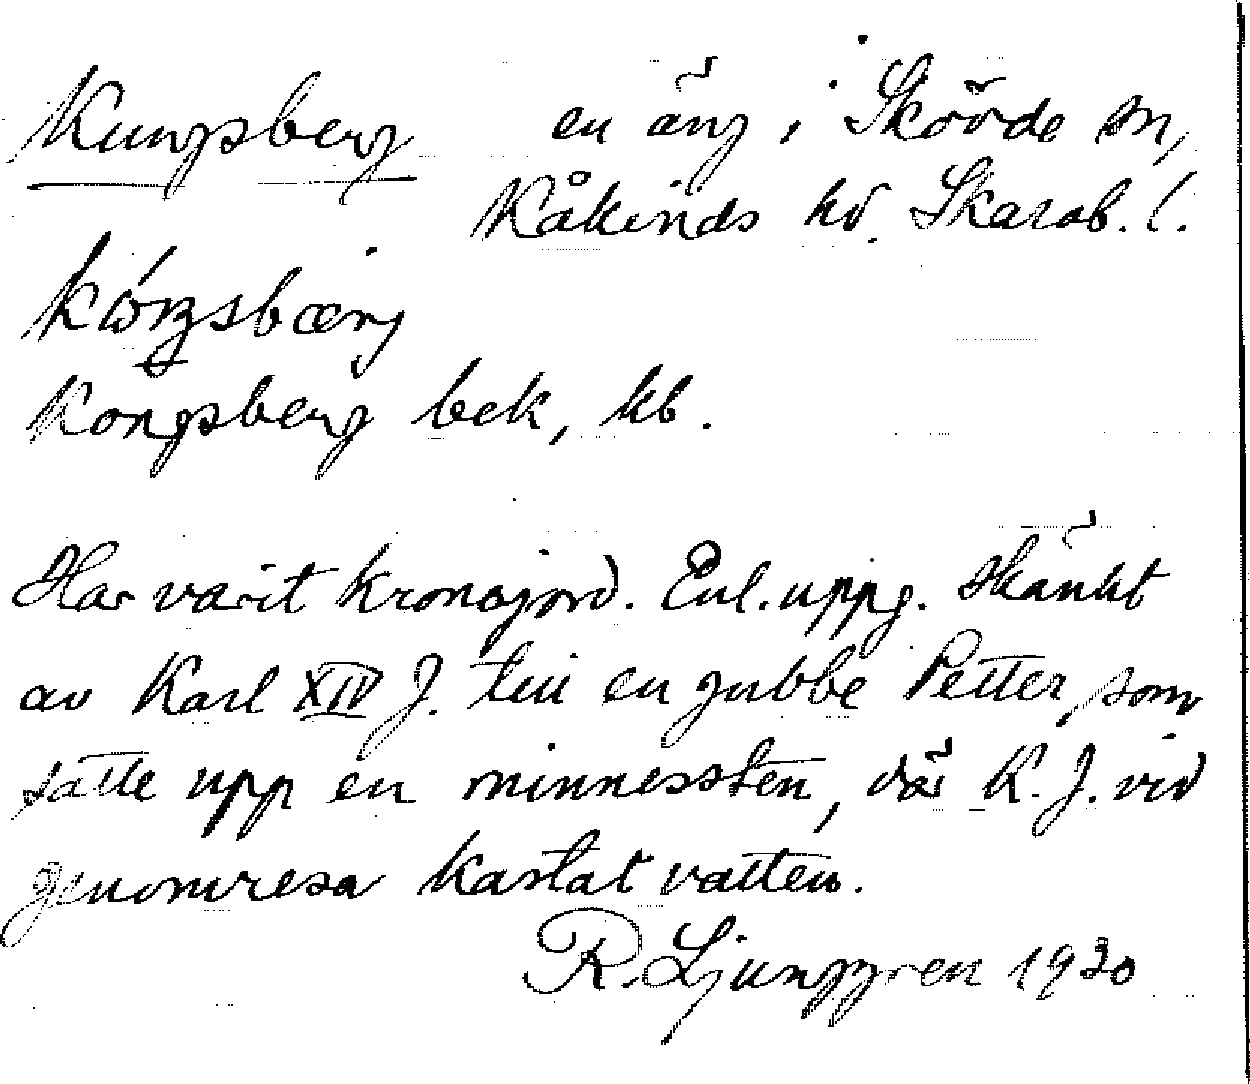 Kungsberg en äng i Skövde sn,
Kåkinds hd. Skarab. l.
Kongsberg bek, kb.
Har varit kronojord. Enl. uppg. skänkt
av Karl XIV J. till en gubbe Petter, som
satte upp en minnessten, där K. J. vid
genomresa kastat vatten.
R. Ljunggren 1930